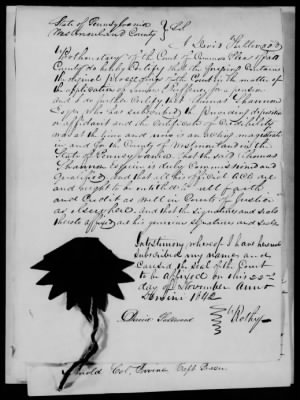 State of Pennsylvania
Westmoreland County } Sct.
I David Fullwood
Prothonotary of the Court of Common Pleas of said
County do hereby Certify that the foregoing Contains
the original proceedings of the Court in the matter of
the application of for a pension
and I do further Certify that Thomas Shannon
Esqr. who has subscribed the preceding
affidavit and the Certificate of
was at the time and now is an acting magistrate
in and for the County of Westmoreland in the
State of Pennsylvania that the said Thomas
Shannon Esquire is duly Commissioned and
qualified, and that all his official acts are
and ought to be entitled to full faith
and Credit as well in Courts of Justice
as elsewhere. And that the signatures and seals
thereto are his genuine signatures and seals
In testimony whereof I have hereunto
subscribed my name and
Caused the seal of the Court
to be affixed on this 22nd
day of November Anno
Domini 1842
David Fullwood
Prothy
Col. Capt